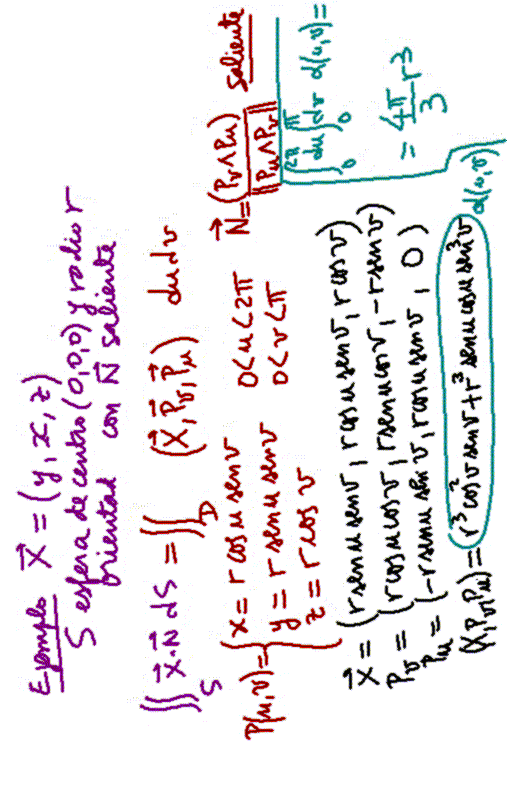 Ejemplo X⃗ = (y, x, z)
S esfera de centro (0,0,0) y radio r
orientada con N⃗ saliente
∬_S X⃗·N⃗ dS = ∬_D (X⃗, P⃗v, P⃗u) du dv
P(u,v) = { x = r cos u sen v
y = r sen u sen v
z = r cos v
0<u<2π
0<v<π
N⃗ = (Pv∧Pu) / ||Pu∧Pv|| saliente
X⃗ = (r sen u sen v, r cos u sen v, r cos v)
Pv = (r cos u cos v, r sen u cos v, -r sen v)
Pu = (-r sen u sen v, r cos u sen v, 0)
(X, Pv, Pu) = r³ cos² v sen v + r³ sen u cos u sen³ v
d(u,v)
∫₀^2π du ∫₀^π dv d(u,v) =
= 4π/3 r³